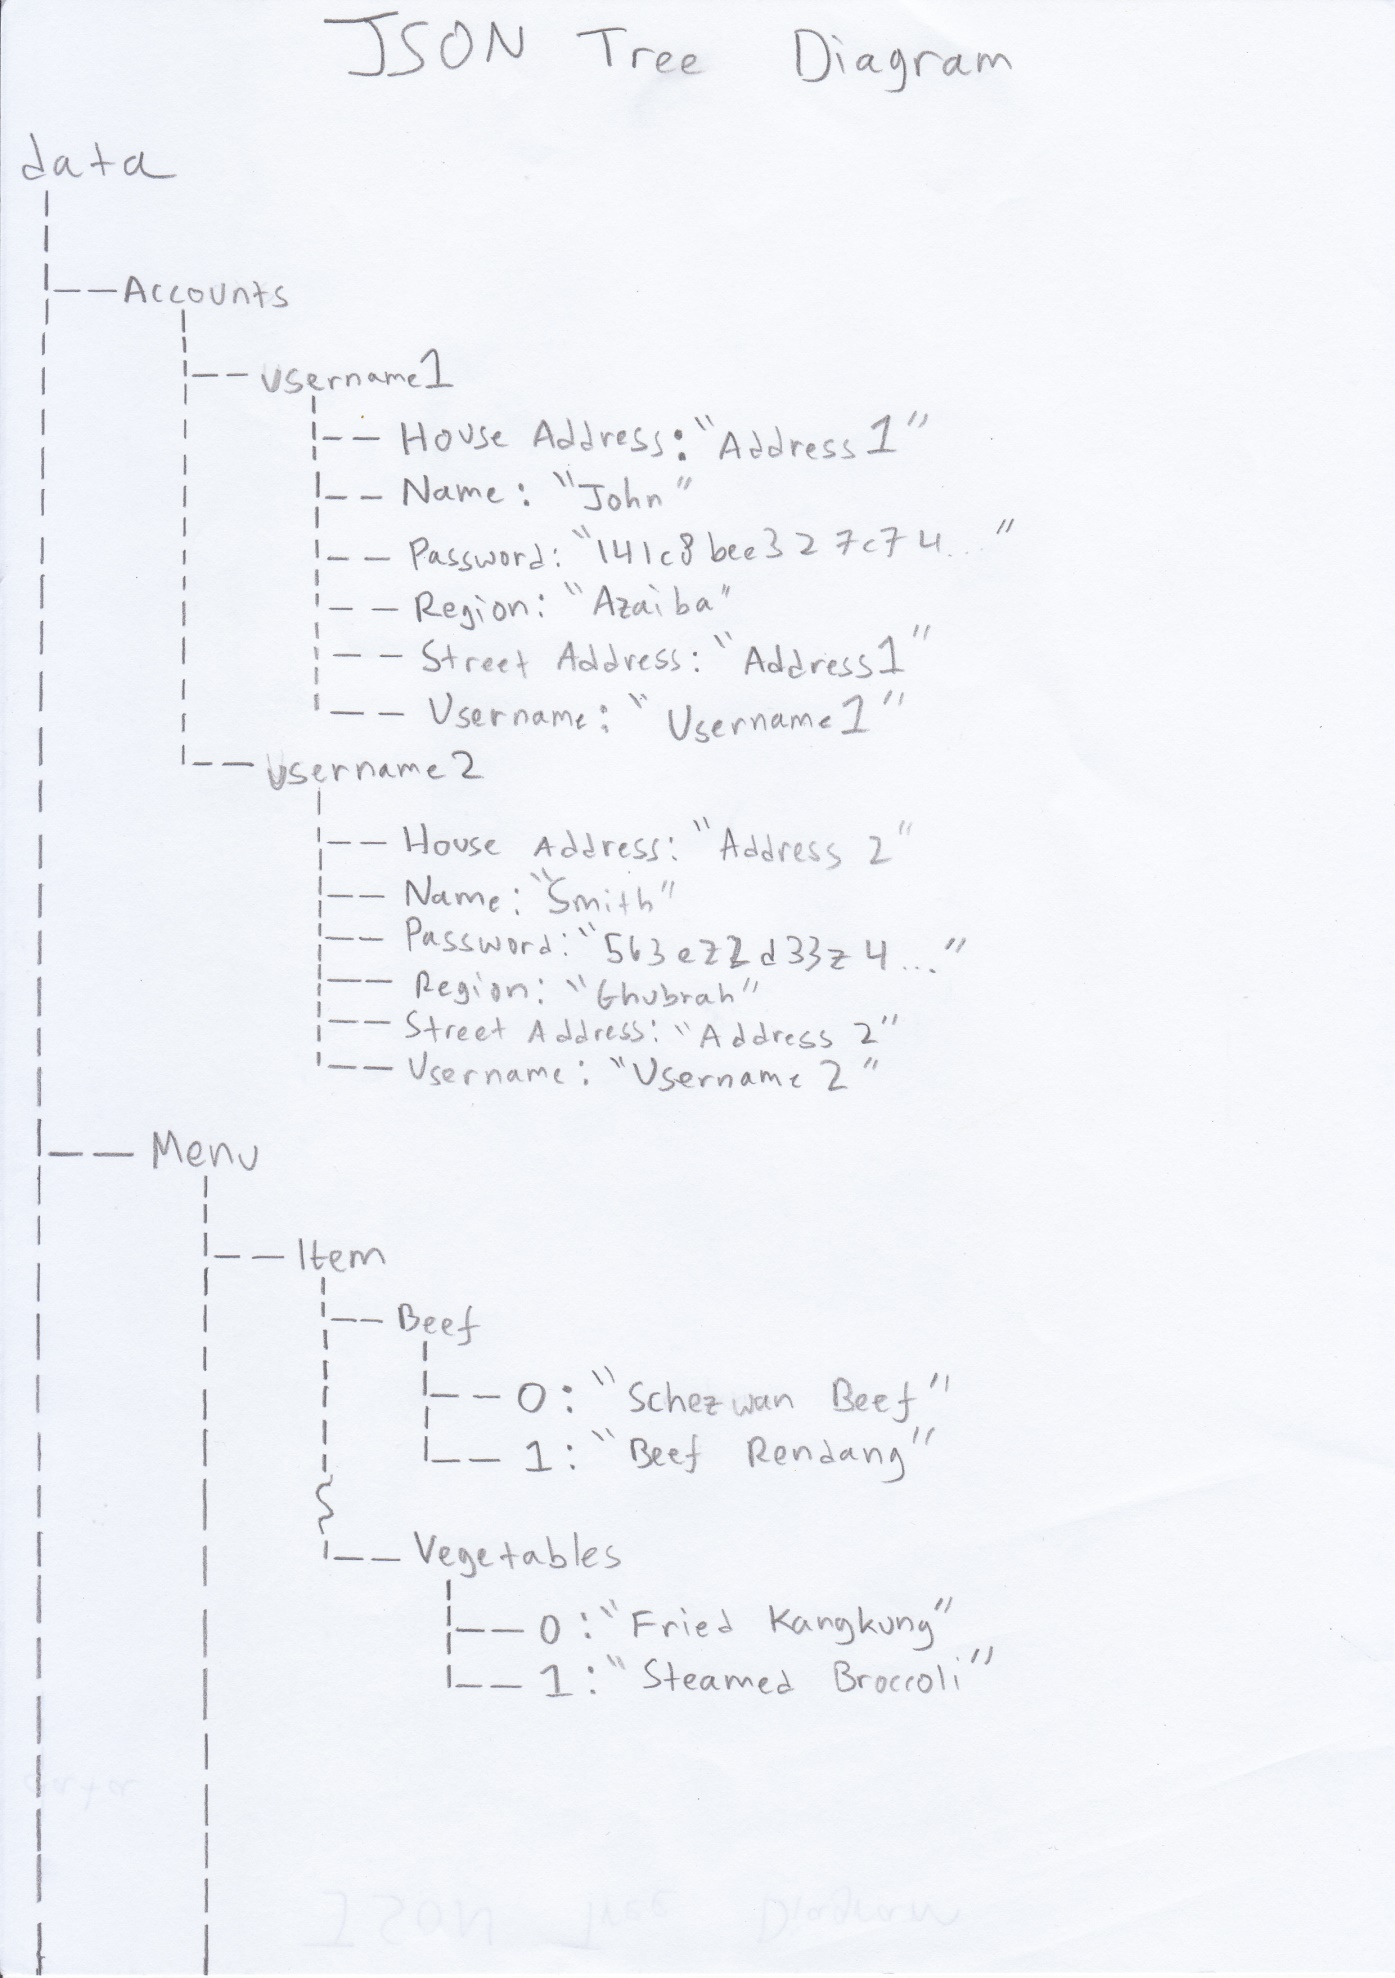 JSON Tree Diagram
data
Accounts
username1
House Address: "Address 1"
Name: "John"
Password: "141c8bee327c74..."
Region: "Azaiba"
Street Address: "Address1"
Username: "Username1"
username2
House Address: "Address 2"
Name: "Smith"
Password: "563ez2d33z4..."
Region: "Ghubrah"
Street Address: "Address 2"
Username: "Username 2"
Menu
Item
Beef
0: "Schezwan Beef"
1: "Beef Rendang"
Vegetables
0: "Fried Kangkung"
1: "Steamed Broccoli"